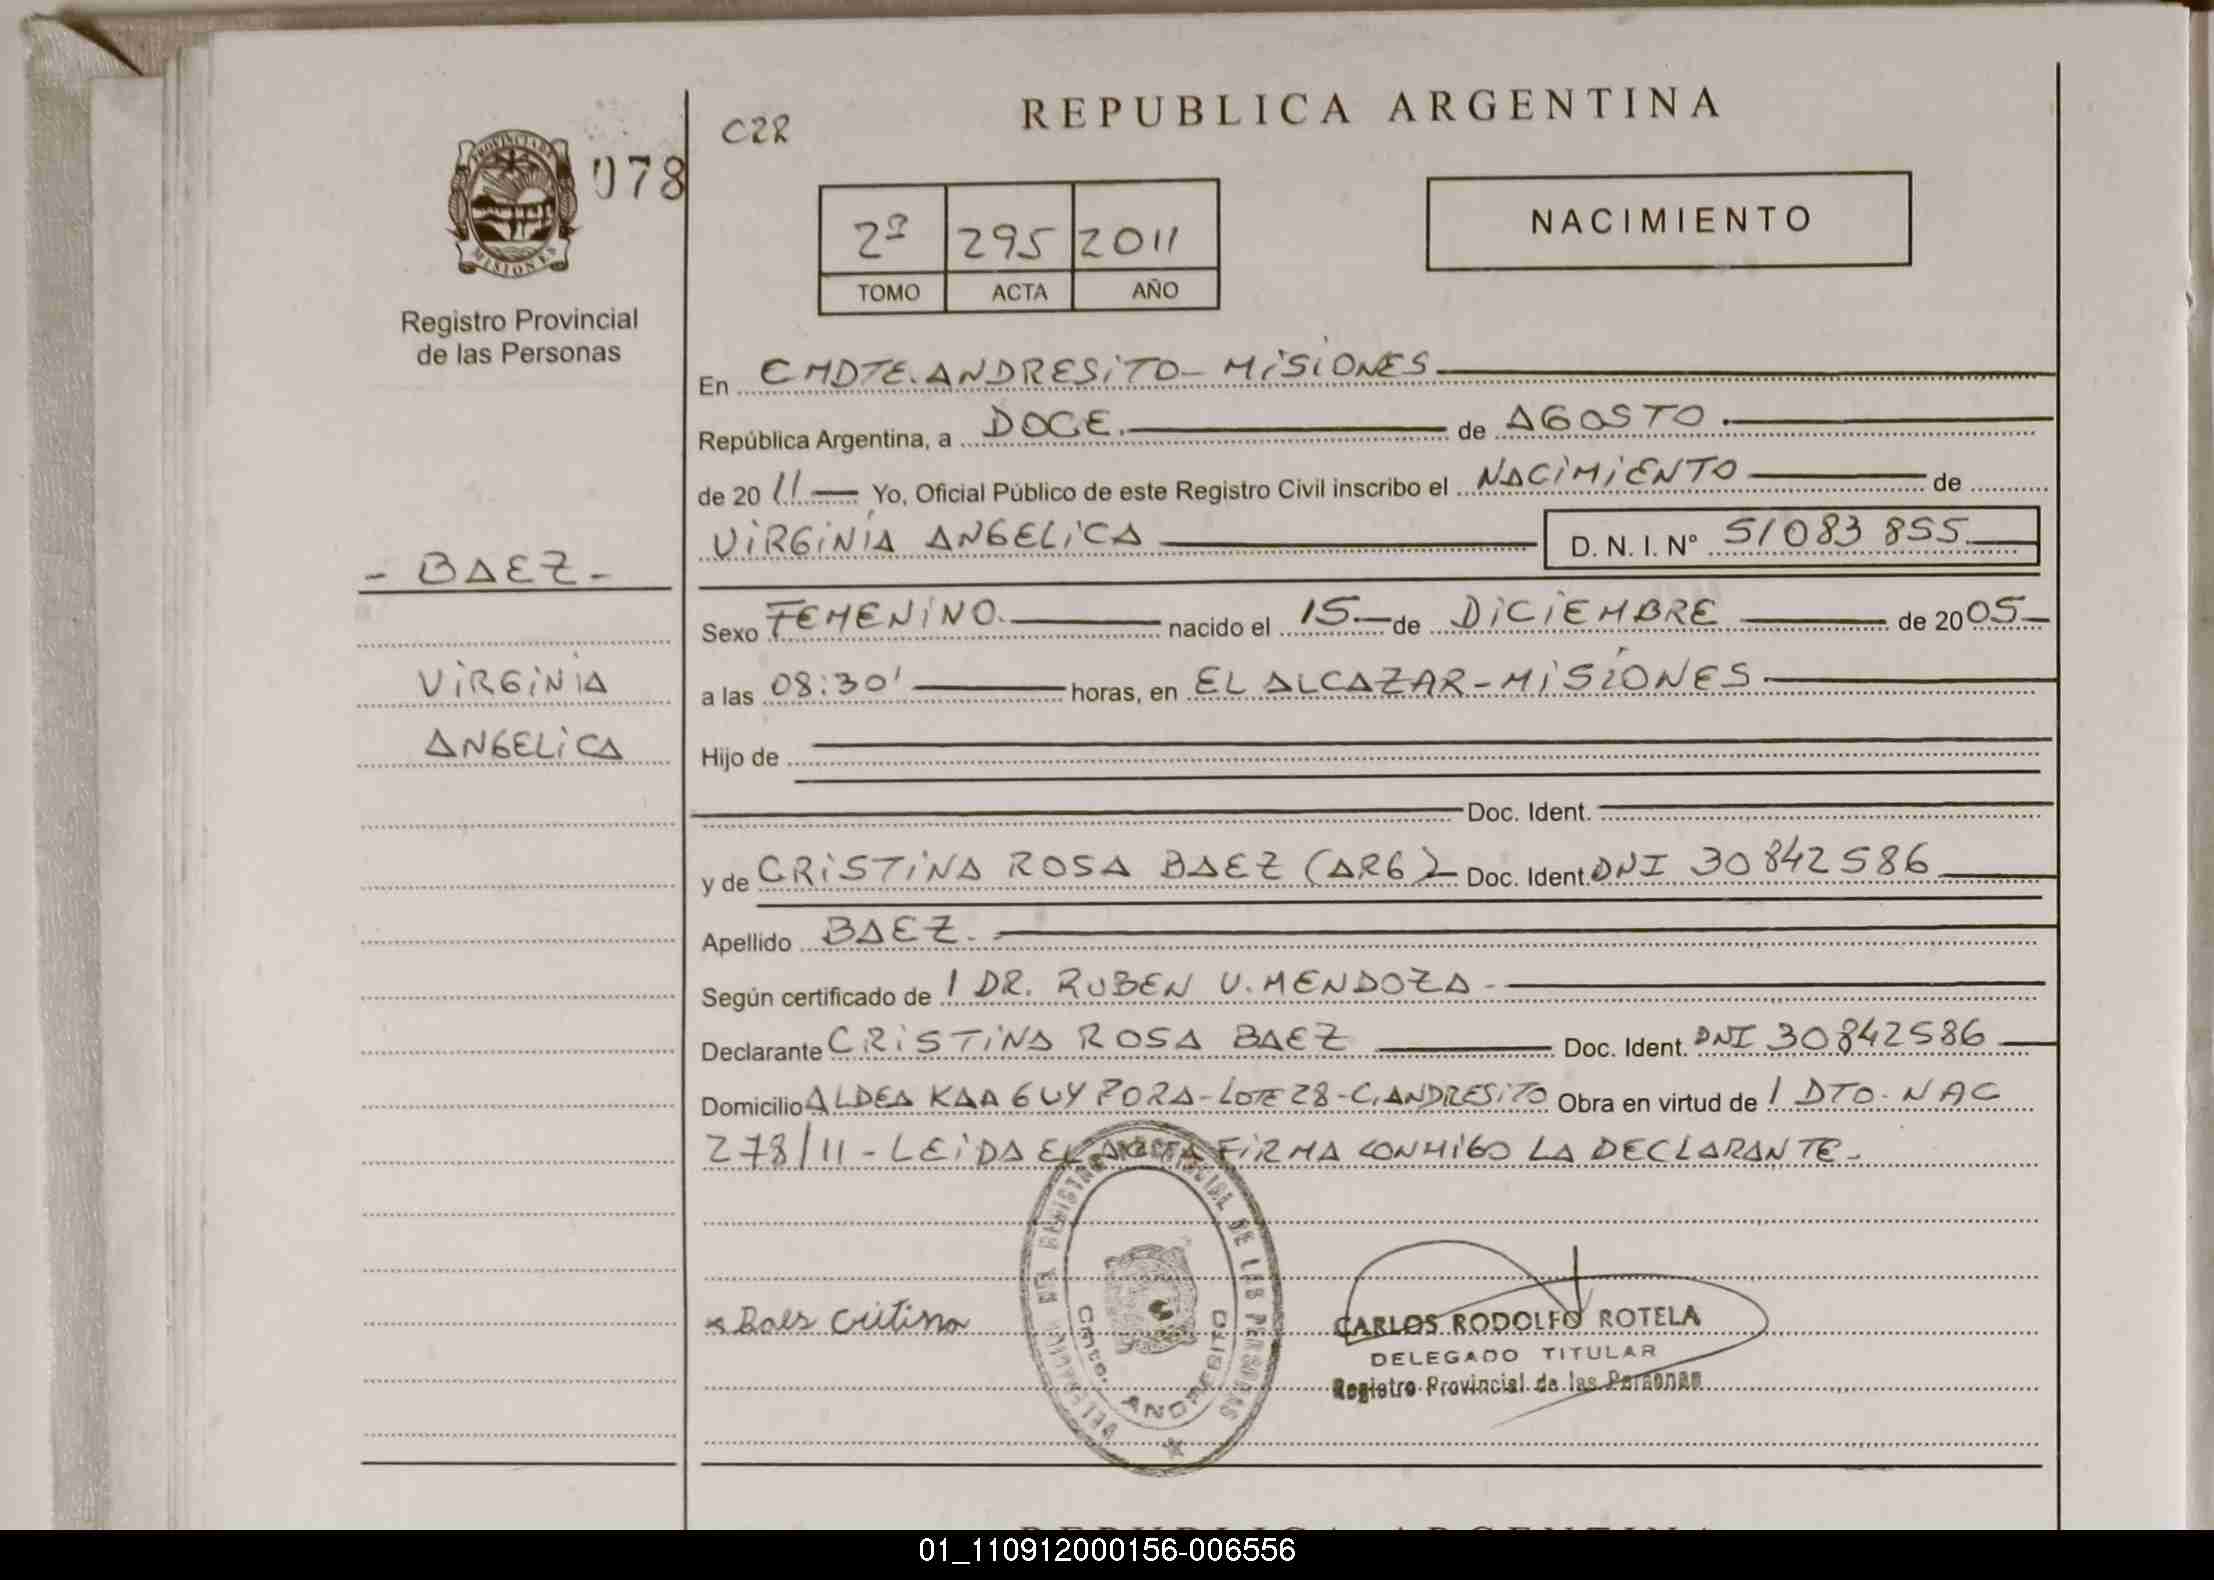 REPUBLICA ARGENTINA
C22
078
PROVINCIA DE MISIONES
Registro Provincial
de las Personas
2º 295 2011
TOMO ACTA AÑO
NACIMIENTO
En CMDTE. ANDRESITO - MISIONES
República Argentina, a DOCE. de AGOSTO
de 2011 Yo, Oficial Público de este Registro Civil inscribo el NACIMIENTO de
VIRGINIA ANGELICA D. N. I. Nº 51083 855
- BAEZ -
VIRGINIA
ANGELICA
Sexo FEMENINO. nacido el 15 de DICIEMBRE de 2005
a las 08:30' horas, en EL ALCAZAR - MISIONES
Hijo de
Doc. Ident.
y de CRISTINA ROSA BAEZ (ARG) Doc. Ident. DNI 30842586
Apellido BAEZ.
Según certificado de 1 DR. RUBEN U. MENDOZA -
Declarante CRISTINA ROSA BAEZ Doc. Ident. DNI 30842586
Domicilio ALDEA KAAGUY PORA - LOTE 28 - C. ANDRESITO Obra en virtud de 1 DTO. NAC
278/11 - LEIDA EL ACTA FIRMA CONMIGO LA DECLARANTE -
REGISTRO PROVINCIAL DE LAS PERSONAS
Cmte. ANDRESITO
CARLOS RODOLFO ROTELA
DELEGADO TITULAR
Registro Provincial de las Personas
REPUBLICA ARGENTINA
01_110912000156-006556